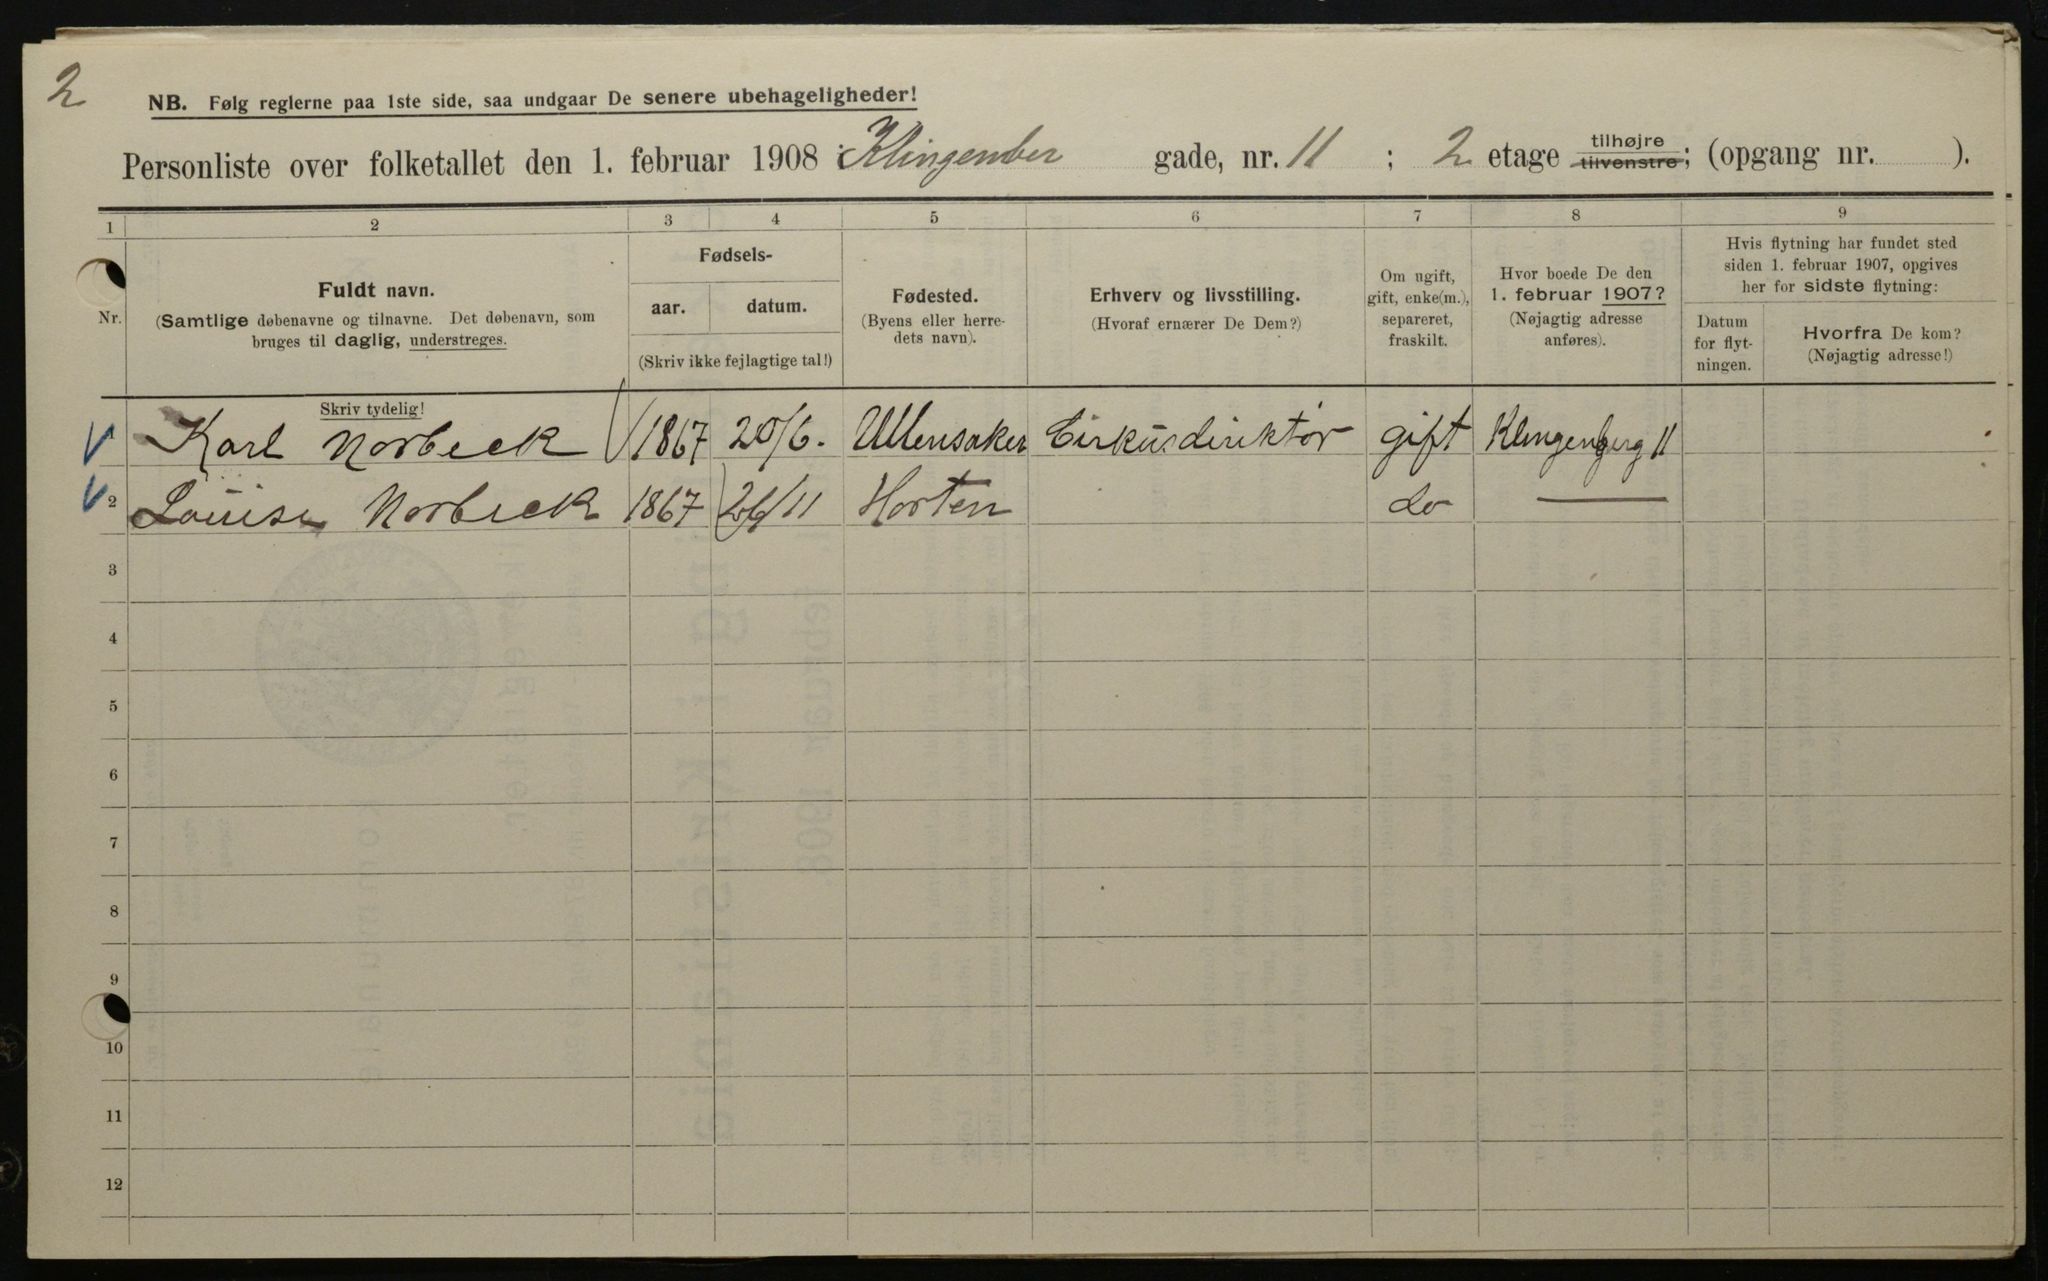 2
NB. Følg reglerne paa 1ste side, saa undgaar De senere ubehageligheder!
Personliste over folketallet den 1. februar 1908 i Klingenber gade, nr. 11 ; 2 etage tilhøjre tilvenstre; (opgang nr. ).
1 2 3 4 5 6 7 8 9
Nr.
Fuldt navn.
(Samtlige døbenavne og tilnavne. Det døbenavn, som
bruges til daglig, understreges.
Skriv tydelig!
Fødsels-
aar. datum.
(Skriv ikke fejlagtige tal!)
Fødested.
(Byens eller herre-
dets navn).
Erhverv og livsstilling.
(Hvoraf ernærer De Dem?)
Om ugift,
gift, enke(m.),
separeret,
fraskilt.
Hvor boede De den
1. februar 1907?
(Nøjagtig adresse
anføres).
Hvis flytning har fundet sted
siden 1. februar 1907, opgives
her for sidste flytning:
Datum
for flyt-
ningen.
Hvorfra De kom?
(Nøjagtig adresse!)
Karl Norbeck 1867 20/6. Ullensaker Cirkusdirektør gift Klingenberg 11
2 Louise Norbeck 1867 26/11 Horten do —
3
4
5
6
7
8
9
10
11
12